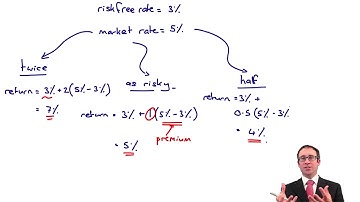 riskfree rate = 3%
market rate = 5%
twice
return = 3% + 2(5% - 3%)
= 7%
as risky
return = 3% + 1(5% - 3%)
premium
= 5%
half
return = 3% +
0.5(5% - 3%)
= 4%